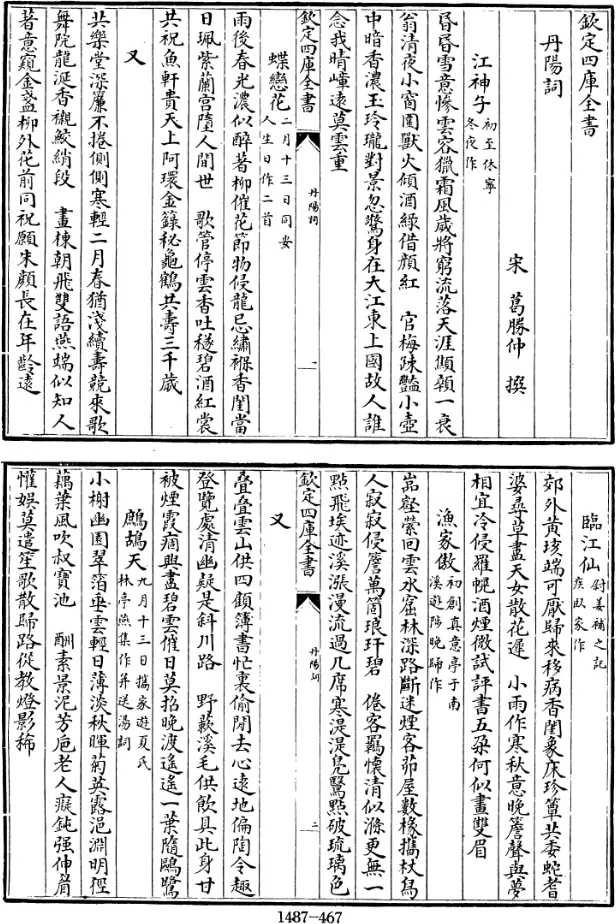 欽定四庫全書
丹陽詞
宋 葛勝仲 撰
江神子 初至休寧冬夜作
昏昏雪意慘雲容獵霜風歲將窮流落天涯顦顇一衰
翁清夜小窗圍獸火傾酒綠借顔紅 官梅疎豔小壺
中暗香濃玉玲瓏對景忽驚身在大江東上國故人誰
念我晴嶂遠莫雲重
欽定四庫全書 丹陽詞 一
蝶戀花 二月十三日同安人生日作二首
雨後春光濃似醉著柳催花節物侵龍忌繡褓香閨當
日珮紫蘭宫墮人間世 歌管停雲香吐穟碧酒紅裳
共祝魚軒貴天上阿環金籙秘龜鶴共壽三千歲
又
共樂堂深簾不捲側側寒輕二月春猶淺續壽競來歌
舞院龍涎香襯鮫綃段 畫棟朝飛雙語燕端似知人
著意窺金盞柳外花前同祝願朱顔長在年齡遠
臨江仙 尉姜補之記疾臥家作
郊外黄埃端可厭歸來移病香閨象床珍簟共委蛇耆
婆尋草盡天女散花遲 小雨作寒秋意晚簷聲與夢
相宜冷侵羅幌酒煙微試評書五朶何似畫雙眉
漁家傲 初創真意亭于南溪遊陟晚歸作
嵓壑縈回雲水窟林深路斷迷煙客茆屋數椽攜杖舄
人寂寂侵簷萬箇琅玕碧 倦客羈懷清似滌更無一
點飛埃迹溪漲漫流過几席寒湜湜鳧鷖點破琉璃色
欽定四庫全書 丹陽詞 二
又
疊疊雲山供四顧簿書忙裏偷閒去心遠地偏陶令趣
登覽處清幽疑是斜川路 野蔌溪毛供飲具此身甘
被煙霞痼興盡碧雲催日莫招晚渡遙遙一葉隨鷗鷺
鷓鴣天 九月十三日攜家遊夏氏林亭燕集作并送湯詞
小榭幽園翠箔垂雲輕日薄淡秋暉菊英露浥淵明徑
藕葉風吹叔寶池 酬素景泥芳巵老人癡鈍强伸眉
懽娱莫遣笙歌散歸路從教燈影稀
1487-467